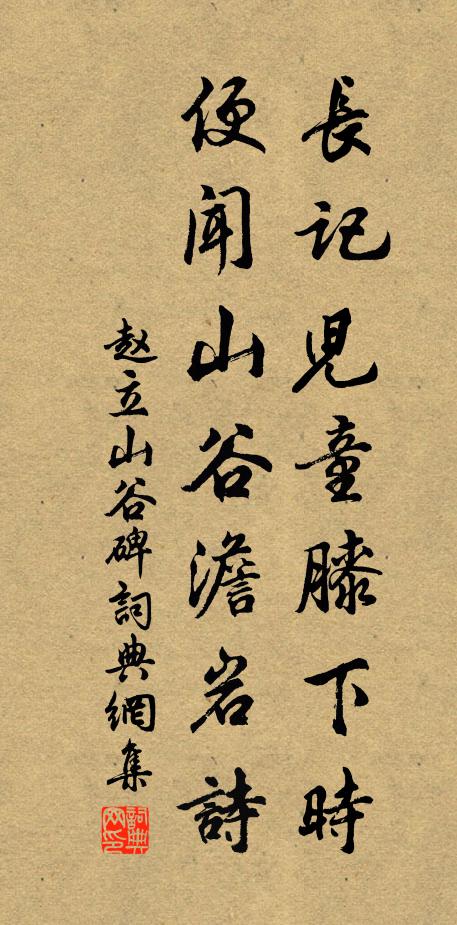 長记兒童膝下時
便闻山谷澹岩詩
赵立山谷碑詞典網集
詞典网印